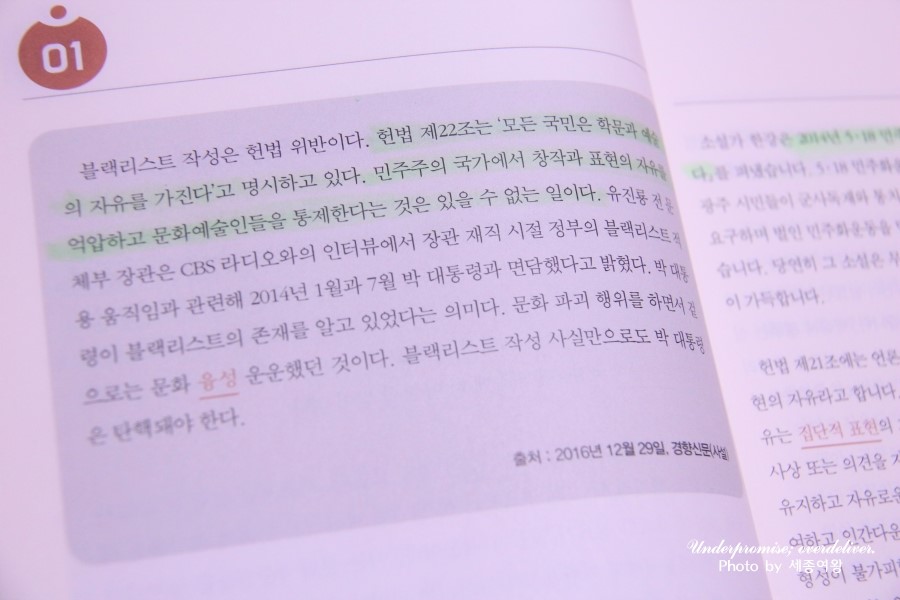 01
블랙리스트 작성은 헌법 위반이다. 헌법 제22조는 '모든 국민은 학문과 예술
의 자유를 가진다'고 명시하고 있다. 민주주의 국가에서 창작과 표현의 자유를
억압하고 문화예술인들을 통제한다는 것은 있을 수 없는 일이다. 유진룡 전 문
체부 장관은 CBS 라디오와의 인터뷰에서 장관 재직 시절 정부의 블랙리스트 적
용 움직임과 관련해 2014년 1월과 7월 박 대통령과 면담했다고 밝혔다. 박 대통
령이 블랙리스트의 존재를 알고 있었다는 의미다. 문화 파괴 행위를 하면서 겉
으로는 문화 융성 운운했던 것이다. 블랙리스트 작성 사실만으로도 박 대통령
은 탄핵돼야 한다.
출처 : 2016년 12월 29일, 경향신문(사설)
소설가 한강은 2014년 5·18
다』를 펴냈습니다. 5·18 민주화
광주 시민들이 군사독재와
요구하며 벌인 민주화운동을
습니다. 당연히 그 소설은
이 가득합니다.
헌법 제21조에는 언론
현의 자유라고 합니다.
유는 집단적 표현의
사상 또는 의견을
유지하고 자유로운
여하고 인간다운
형성이 불가피
Underpromise; overdeliver.
Photo by 세종여왕